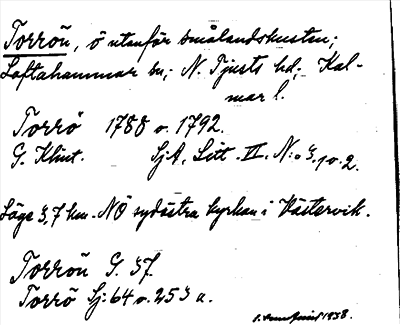 Torrön, ö utanför smålandskusten;
Loftahammar sn; N. Tjusts hd; Kal-
mar l.
Torrö 1788 o. 1792.
G. Klint. SjA, Litt. II. N:o 3. 1 o. 2.
Läge 3,7 km. NÖ sydöstra kyrkan i Västervik.
Torrön G. 37
Torrö Sj: 64 o. 253 a.
1938.